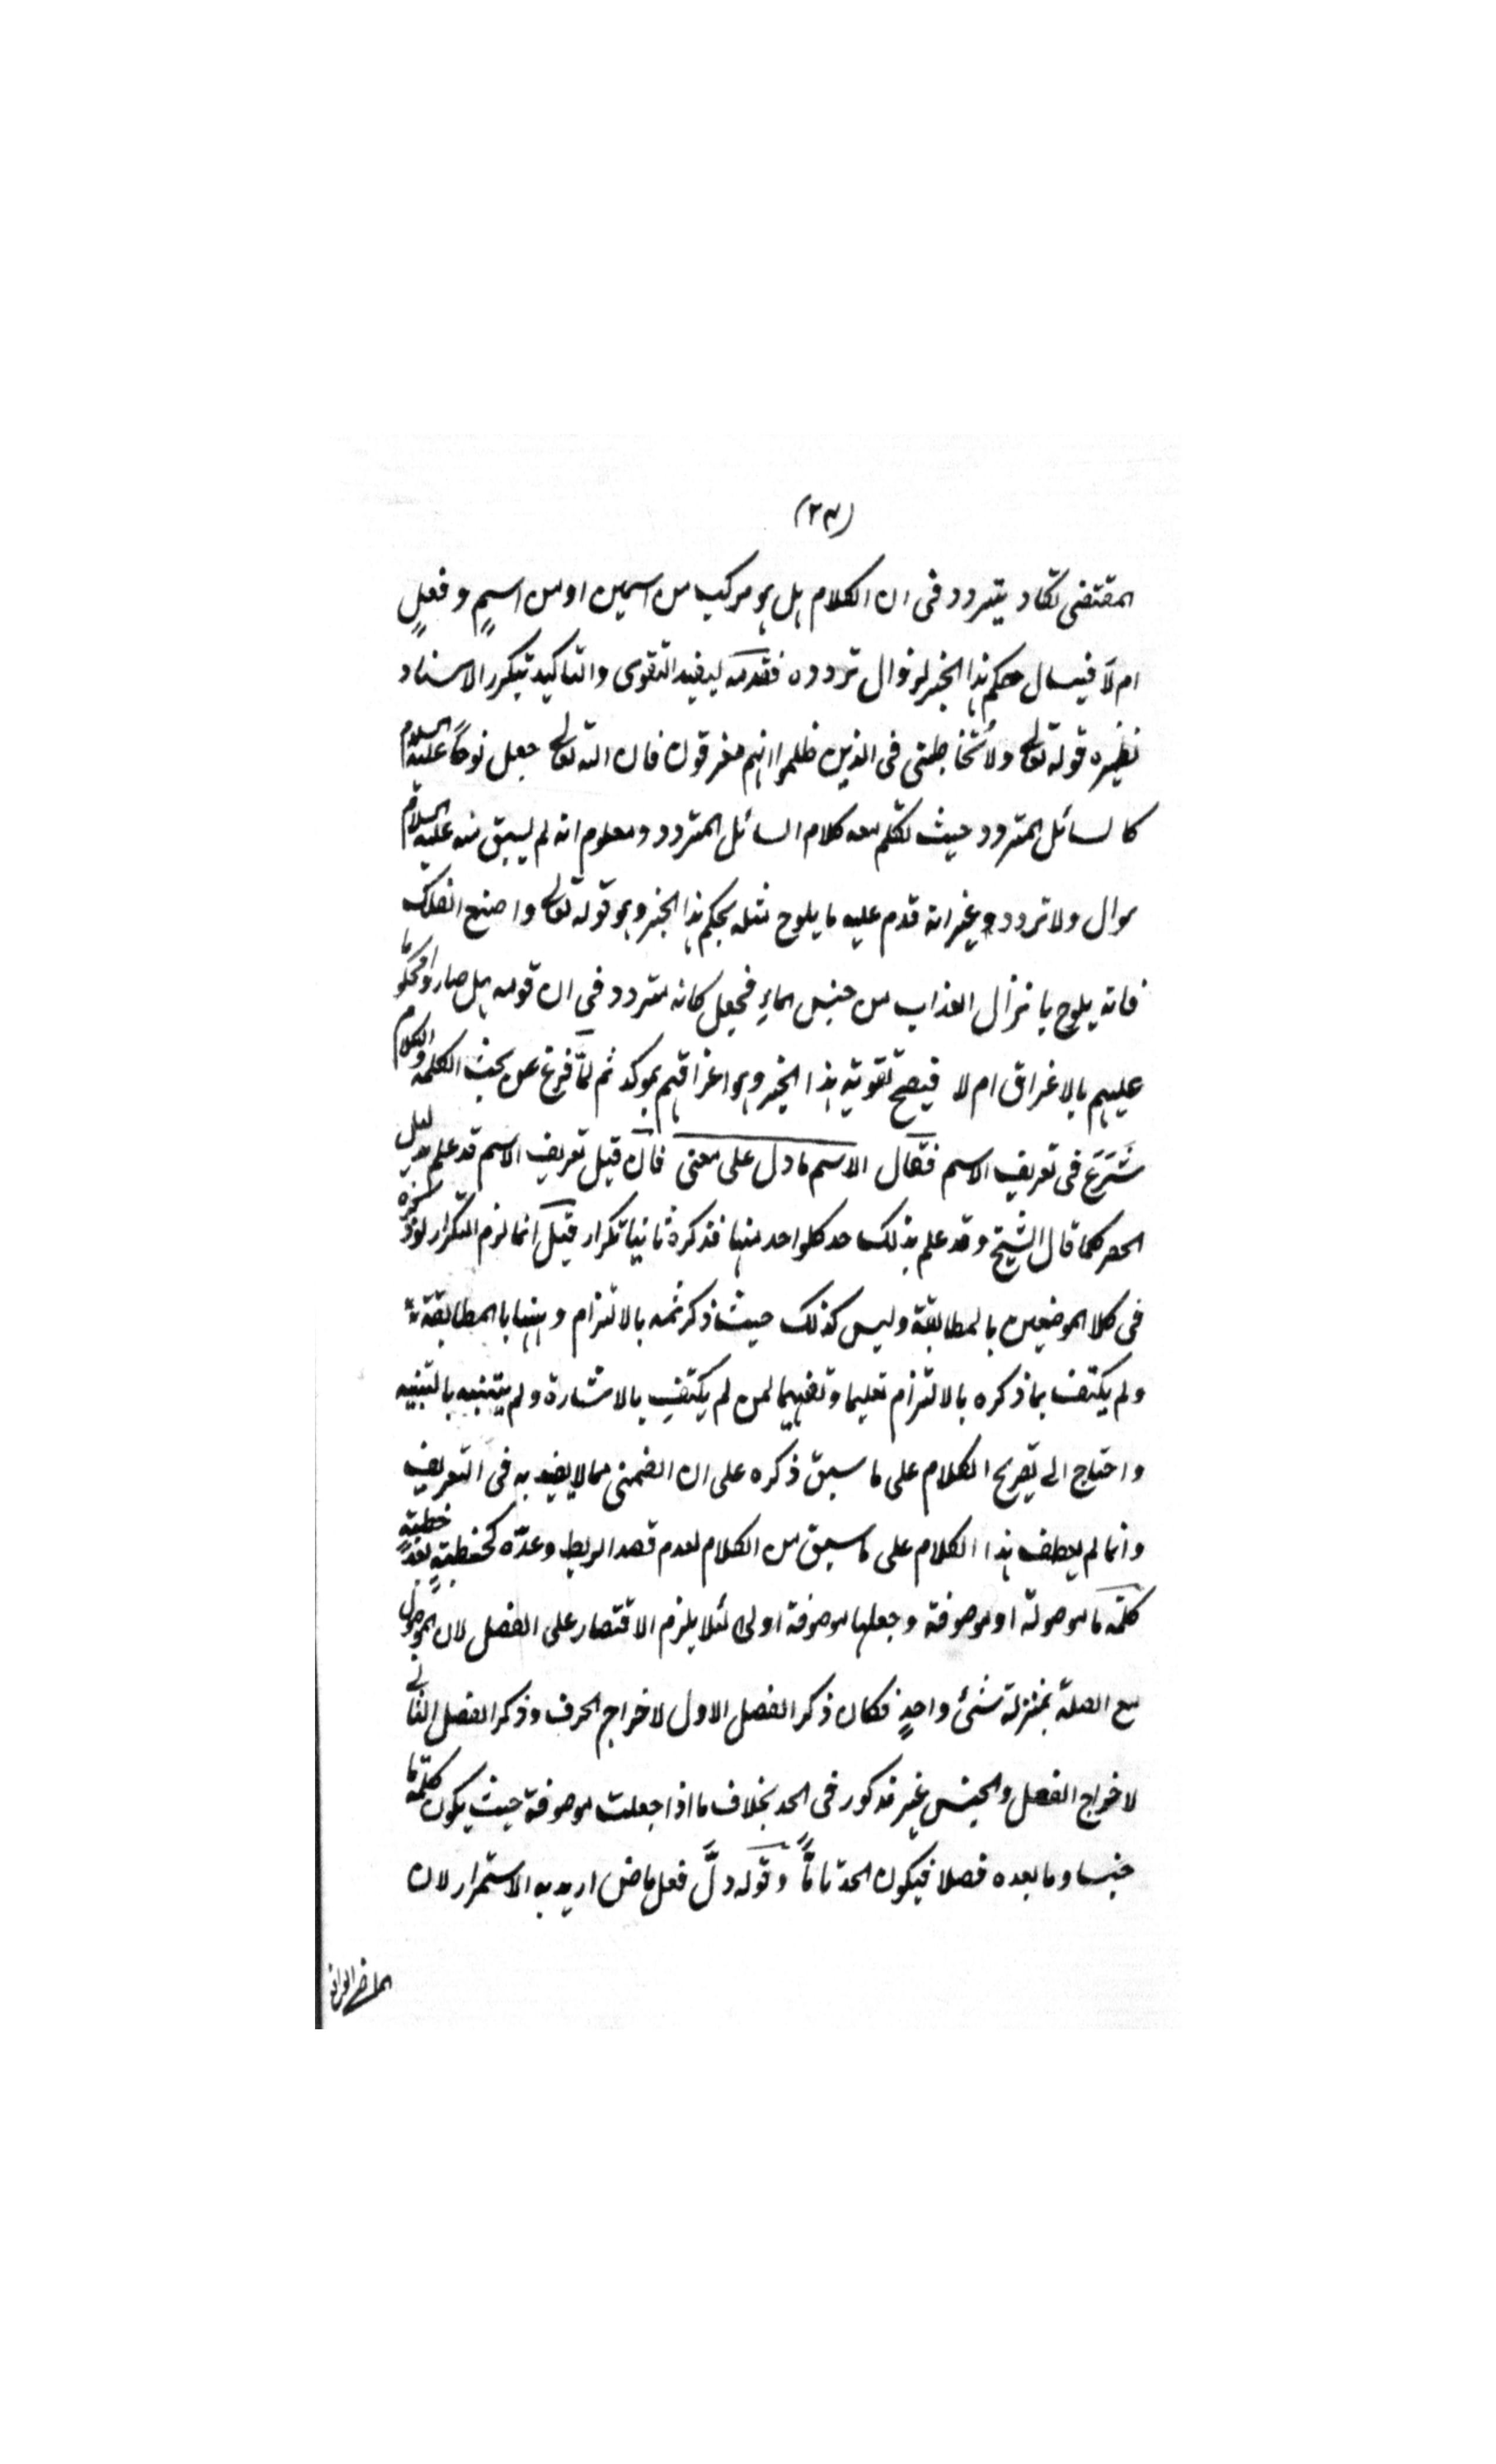 (٣٤)
المقتضى تكاد يتردد فى ان الكلام هل هو مركب من اسمين او من اسمٍ و فعلٍ
ام لَا فيسال حكم هذا الخبر لزوال تردده فقدمه ليفيد التقوى والتاكيد بتكرر الاسناد
نظيره قوله تعالى ولا تخاطبنى فى الذين ظلموا انهم مغرقون فان الله تعالى جعل نوحًا عليه السلام
كالسائل المتردد حيث تكلم معه كلام السائل المتردد ومعلوم انه لم يسبق منه عليه السلام
سوال ولا تردد وغير انه قدم عليه ما يلوح مثله بحكم هذا الخبر وهو قوله تعالى واصنع الفلك
فانه يلوح بانزال العذاب من جنس الماءِ فجعل كانه متردد فى ان قومه هل صاروا محكوما
عليهم بالاغراق ام لا فيصح تقوية هذا الخبر وهو اغراقهم بموكد ثم لمّا فرغ عن بحث الكلمة والكلام
شَرَعَ فى تعريف الاسم فقال الاسم ما دل على معنى فان قيل تعريف الاسم قد علم بدليل
الحصر كما قال الشيخ وقد علم بذلك حد كلواحد منها فذكره ثانيا تكرار قيل انما لزم التكرار لو ذكره
فى كلا الموضعين بالمطابقة وليس كذلك حيث ذكر ثمه بالالتزام وههنا بالمطابقة
ولم يكتف بما ذكره بالالتزام تعليما وتفهيما لمن لم يكتفِ بالاشارة ولم يتنبه بالتنبيه
واحتاج الى تصريح الكلام على ما سبق ذكره على ان الضمنى مما لا يفيد به فى التعريف
وانما لم يعطف هذا الكلام على ما سبق من الكلام لعدم قصد الربط وعدّه كخطبةٍ بعد خطبةٍ
كلمة ما موصولة او موصوفة وجعلها موصوفة اولى لئلا يلزم الاقتصار على الفصل لان الموصول
مع الصلة بمنزلة شئ واحدٍ فكان ذكر الفصل الاول لاخراج الحرف وذكر الفصل الثانى
لاخراج الفعل والجنس غير مذكور فى الحد بخلاف ما اذا جعلت موصوفة حيث يكون كلمة ما
جنسا وما بعده فصلا فيكون الحد تامًّا وقوله دلَّ فعل ماض اريد به الاستمرار لان